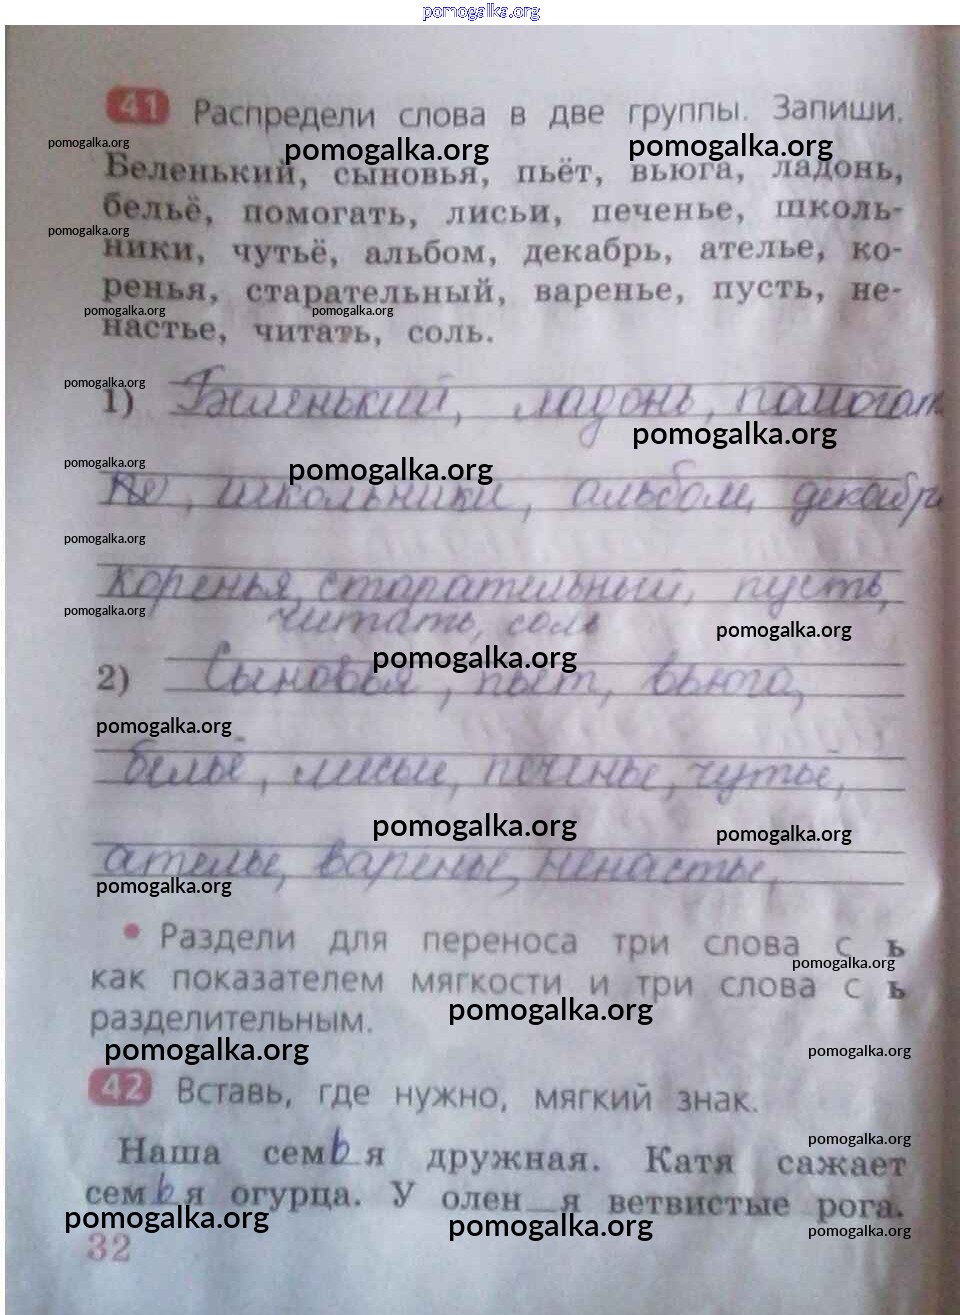 pomogalka.org
41 Распредели слова в две группы. Запиши.
pomogalka.org pomogalka.org pomogalka.org
Беленький, сыновья, пьёт, вьюга, ладонь,
бельё, помогать, лисьи, печенье, школь-
pomogalka.org
ники, чутьё, альбом, декабрь, ателье, ко-
ренья, старательный, варенье, пусть, не-
pomogalka.org pomogalka.org
настье, читать, соль.
pomogalka.org
1) Беленький, ладонь, помогат
pomogalka.org
pomogalka.org pomogalka.org
школьники, альбом, декабрь
pomogalka.org
коренья, старательный, пусть,
pomogalka.org
читать, соль
pomogalka.org
pomogalka.org
2) Сыновья, пьёт, вьюга,
pomogalka.org
бельё, лисьи, печенье, чутьё,
pomogalka.org pomogalka.org
ателье, варенье, ненастье,
pomogalka.org
• Раздели для переноса три слова с ь
pomogalka.org
как показателем мягкости и три слова с ь
pomogalka.org
разделительным.
pomogalka.org pomogalka.org
42 Вставь, где нужно, мягкий знак.
pomogalka.org
Наша семья дружная. Катя сажает
семья огурца. У олен_я ветвистые рога.
pomogalka.org pomogalka.org pomogalka.org
32